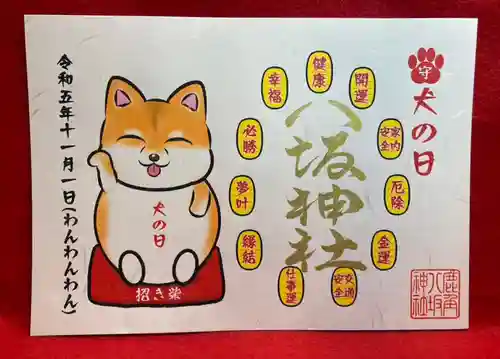 守
犬の日
開運
健康
幸福
必勝
夢叶
縁結
仕事運
交通
安全
金運
厄除
家内
安全
八坂神社
鹿角
八坂
神社
犬の日
招き柴
令和五年十一月一日(わんわんわん)